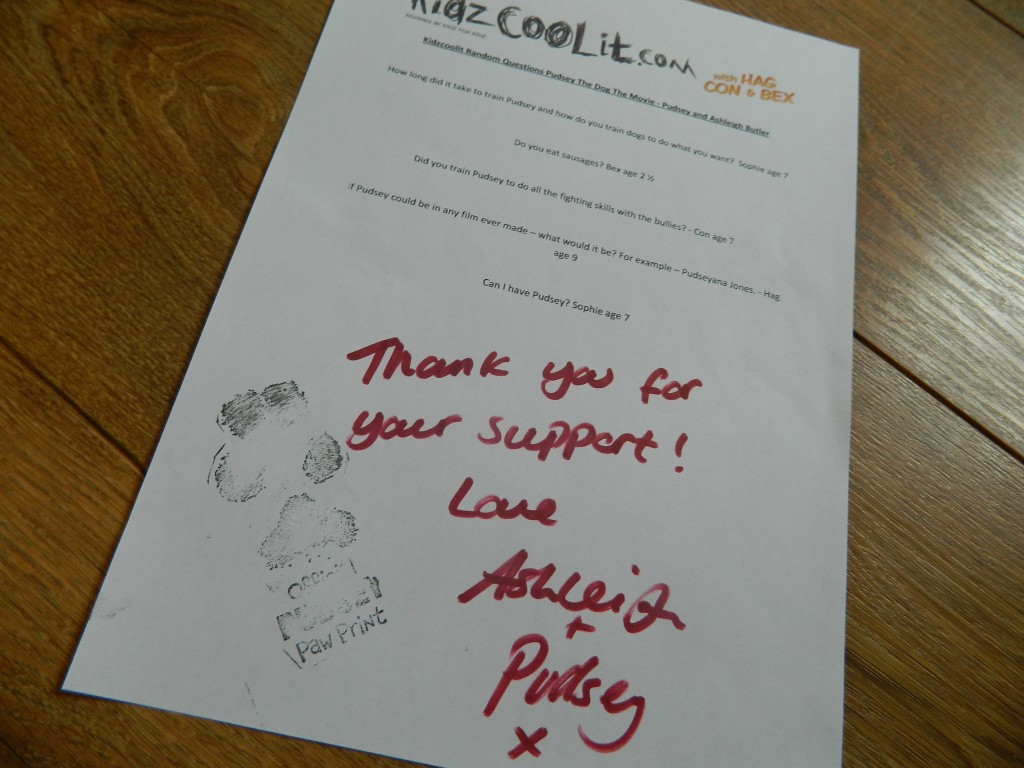 KidzCOOLit.com
REVIEWS BY KIDS FOR KIDS
with HAG
CON & BEX
Kidzcoolit Random Questions Pudsey The Dog The Movie - Pudsey and Ashleigh Butler
How long did it take to train Pudsey and how do you train dogs to do what you want? Sophie age 7
Do you eat sausages? Bex age 2 ½
Did you train Pudsey to do all the fighting skills with the bullies? - Con age 7
If Pudsey could be in any film ever made – what would it be? For example – Pudseyana Jones. - Hag
age 9
Can I have Pudsey? Sophie age 7
Thank you for
your support!
Love
Ashleigh
+
Pudsey
x
Official
PUDSEY
Paw Print